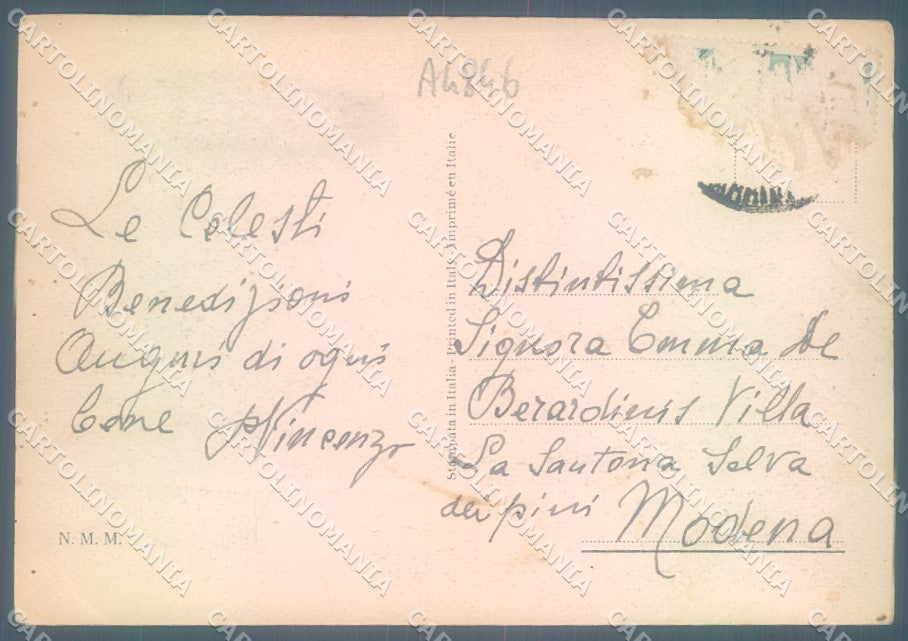 A4846
Le Celesti
Benedizioni
Auguri di ogni
bene P Vincenzo
N. M. M.
Stampata in Italia - Printed in Italy - Imprimé en Italie
Distintissima
Signora Emma De
Berardinis Villa
La Santona Selva
dei pini Modena
CARTOLINOMANIA